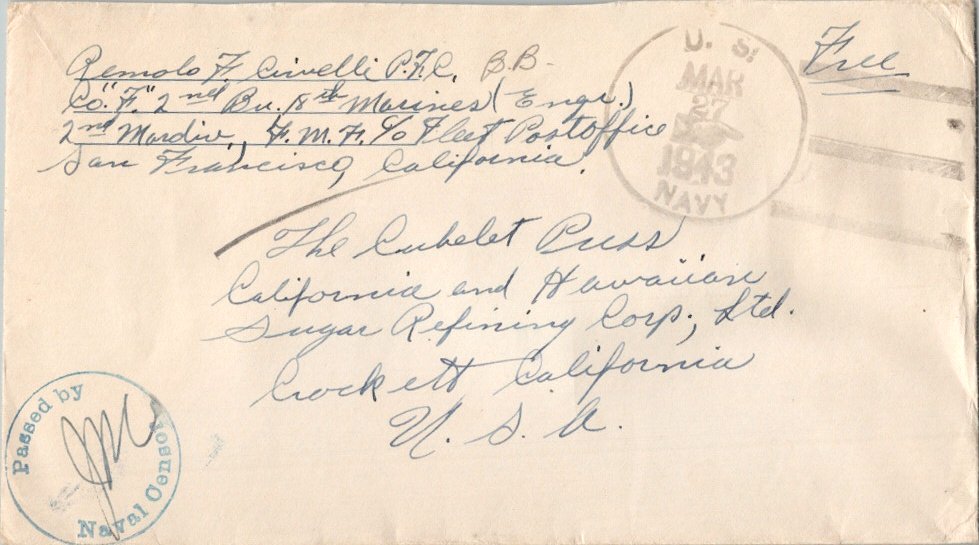 Remolo F. Civelli P.F.C. B.B-
Co. "F." 2nd Bn. 18th Marines (Engr.)
2nd Mardiv., F.M.F. c/o Fleet Postoffice
San Francisco, California.
Free
U. S.
MAR
27
1943
NAVY
The Cubelet Press
California and Hawaiian
Sugar Refining Corp., Ltd.
Crockett California
U. S. A.
Passed by
Naval Censor